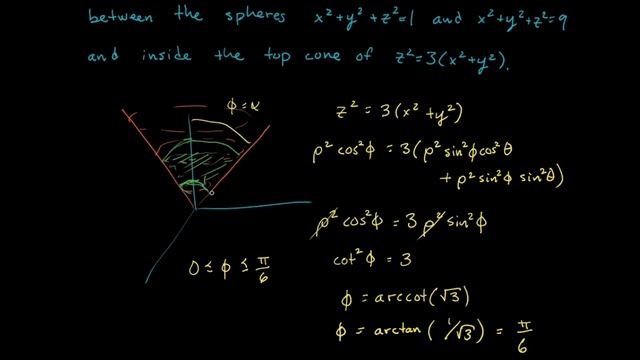 between the spheres x²+y²+z²=1 and x²+y²+z²=9
and inside the top cone of z²=3(x²+y²).
φ=α
z² = 3(x²+y²)
ρ²cos²φ = 3(ρ²sin²φcos²θ
+ ρ²sin²φ sin²θ)
ρ²cos²φ = 3ρ²sin²φ
cot²φ = 3
0 ≤ φ ≤ π/6
φ = arccot(√3)
φ = arctan(1/√3) = π/6